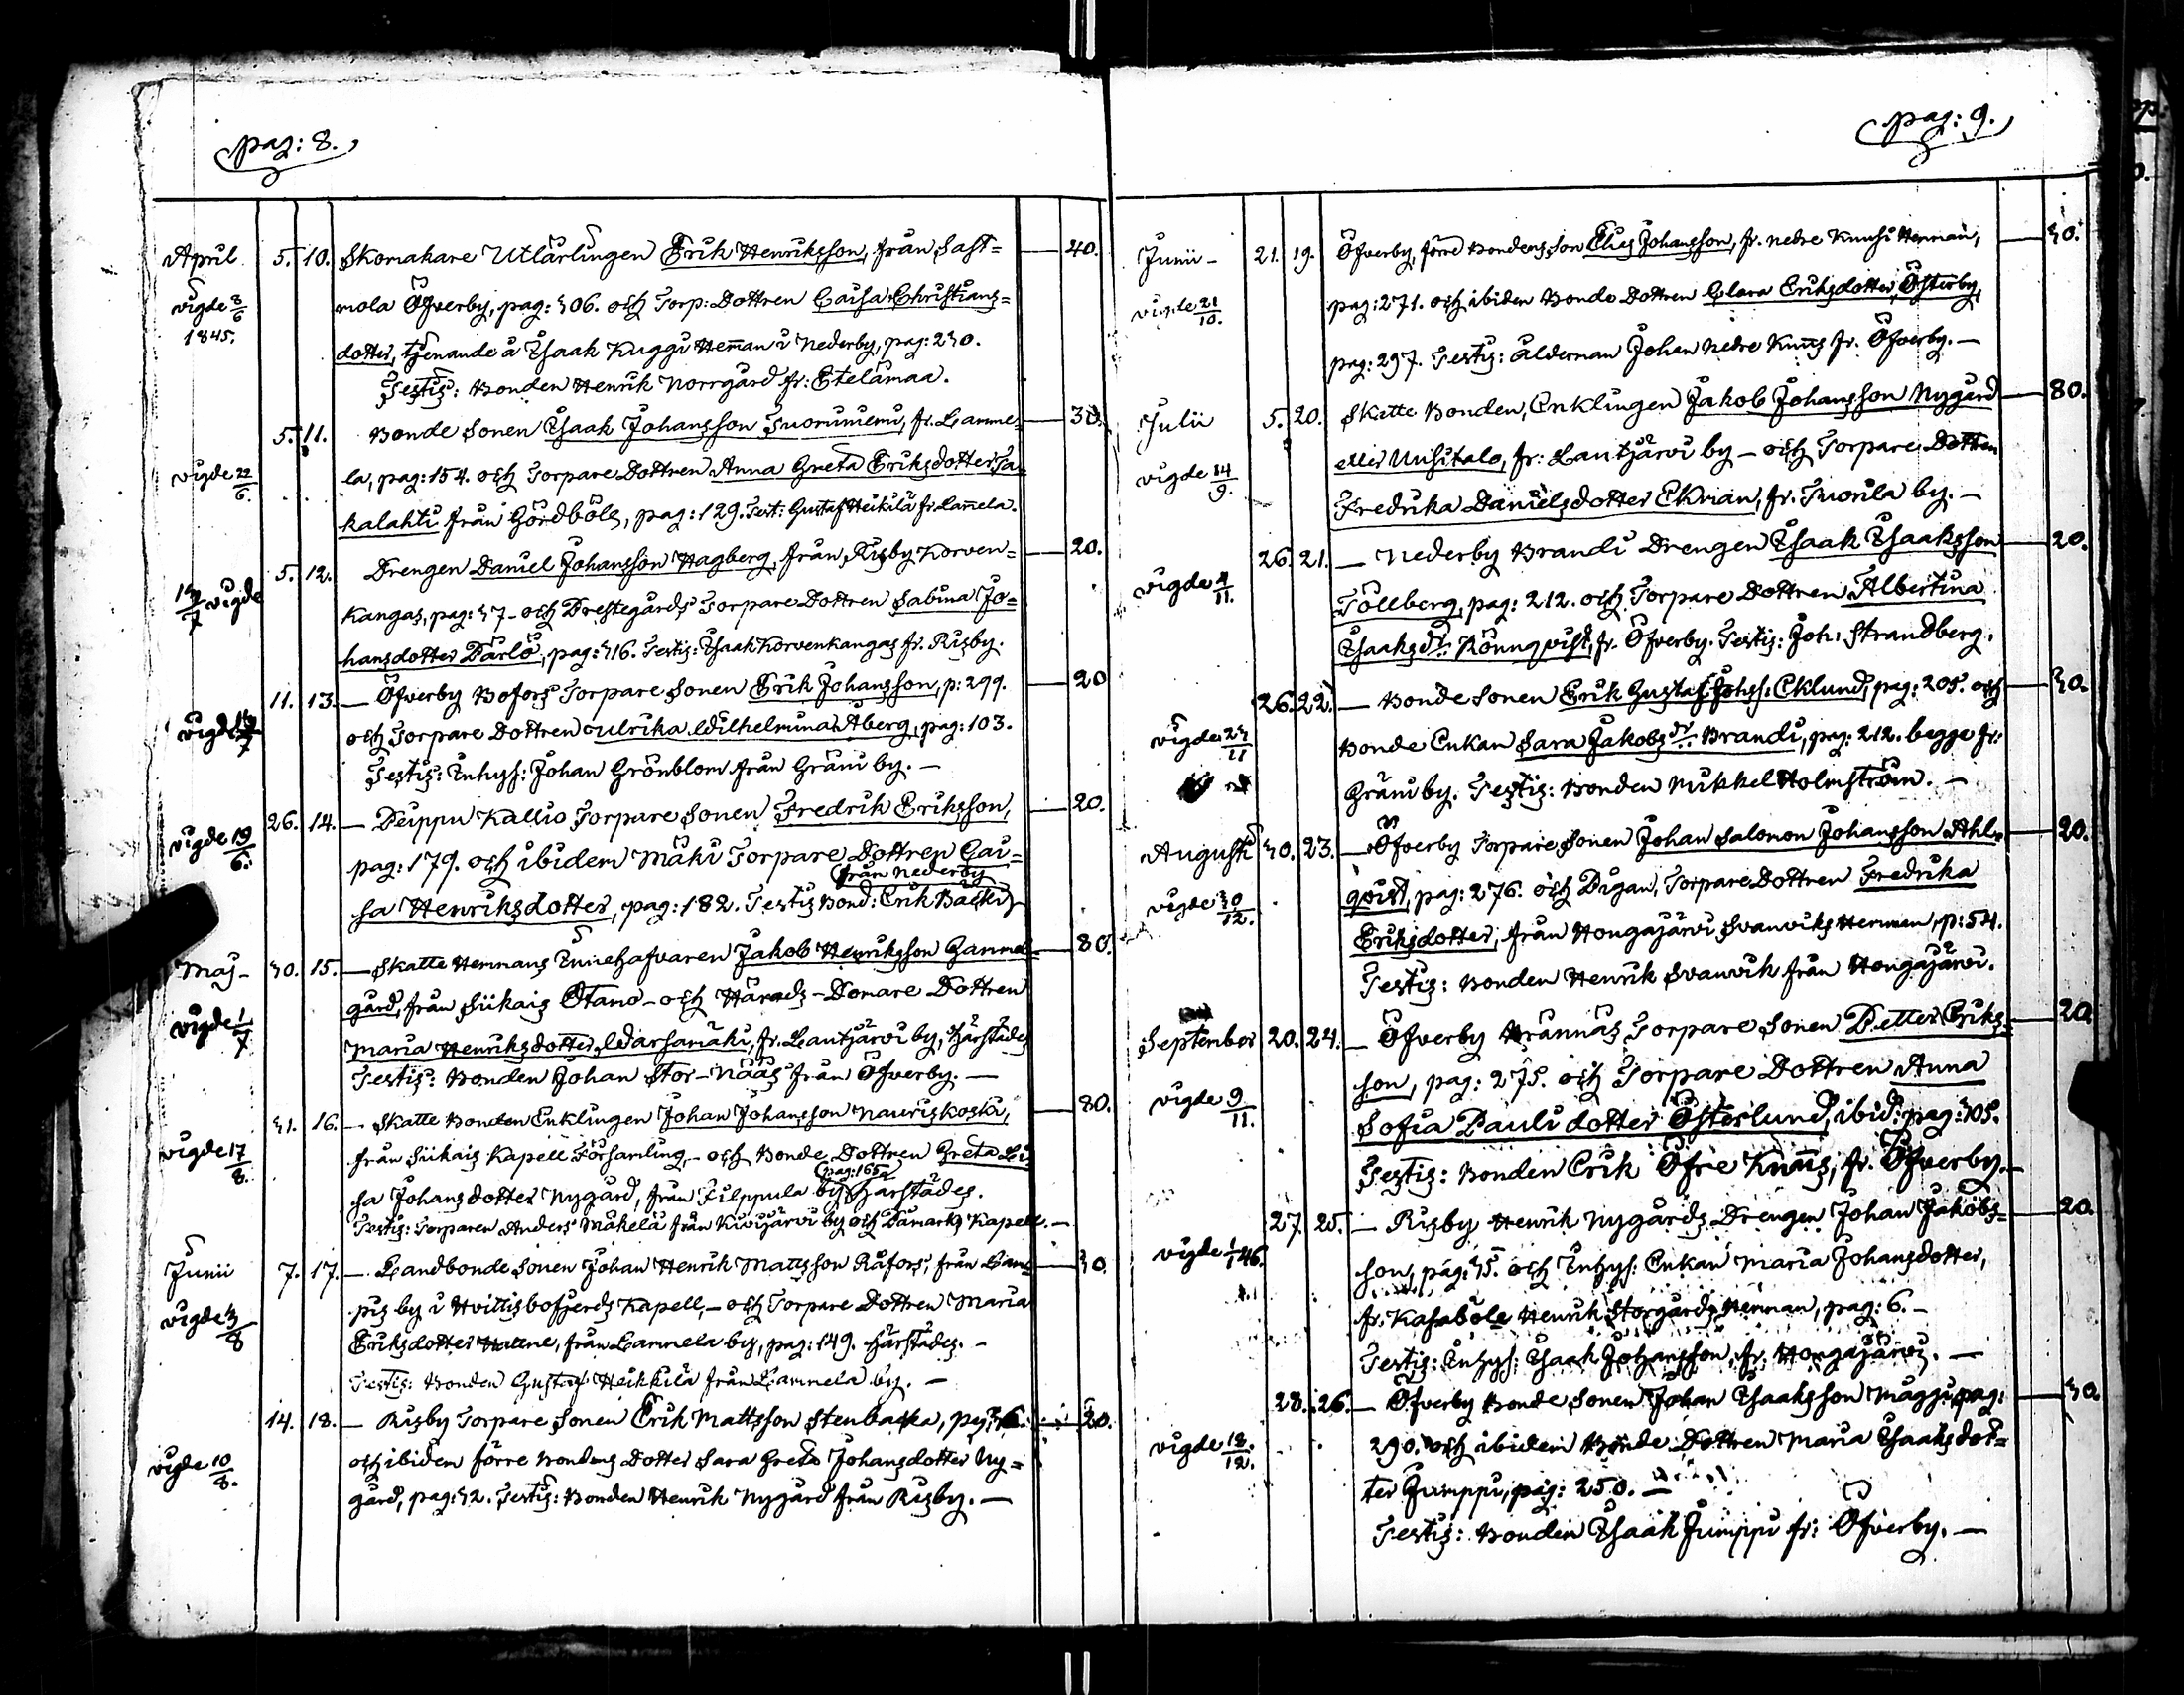 pag: 8.
April 5. 10. Skomakare Utlärlingen Erik Henriksson, från Sast= 40.
vigde 8/6 1845. mola Öfverby, pag: 306. och Torp: Dottren Caisa Christians=
dotter, tjenande å Isaak Kuggi Heman i Nederby, pag: 230.
Testis: Bonden Henrik Norrgård fr: Etelämaa.
5. 11. Bonde Sonen Isaak Johansson Suoruniemi, fr. Lamme= 30.
vigde 22/6. la, pag: 154. och Torpare Dottren Anna Greta Eriksdotter Ta=
kalahti från Gördböle, pag: 129. Test: Gustaf Heikilä fr Lamela.
5. 12. Drengen Daniel Johansson Hagberg, från Risby Korven= 20.
vigde kangas, pag: 37 - och Prestegårds Torpare Dottren Sabina Jo=
hansdotter Pärlö, pag: 316. Testis: Isaak Korvenkangas fr. Risby.
11. 13. — Öfverby Bofors Torpare Sonen Erik Johansson, p: 299. 20
vigde och Torpare Dottren Ulrika Wilhelmina Åberg, pag: 103.
Testis: Inhys: Johan Grönblom från Gräni by. —
26. 14. — Peippu Kallio Torpare Sonen Fredrik Eriksson, 20.
vigde 19/6. pag: 179. och ibidem Mäki Torpare Dottren Cai=
från Nederby
sa Henriksdotter, pag: 182. Testis Bond: Erik Bäcki
Maj - 30. 15. — Skatte Hemmans Innehafvaren Jakob Henriksson Gammel= 80.
gård, från Siikais Otamo - och Härads-Domare Dottren
vigde 1/7 Maria Henriksdotter Warsamäki, fr. Lautjärvi by, härstädes
Testis: Bonden Johan Stor-Nääs från Öfverby. —
31. 16. — Skatte Bonden Enklingen Johan Johansson Nauriskoski, 80.
vigde 17/8. från Siikais Kapell Församling, - och Bonde Dottren Greta Li=
pag: 165
sa Johansdotter Nygård, från Filppula by härstädes.
Testis: Torparen Anders Mäkelä från Kivijärvi by och Pämarks Kapell. —
Junii 7. 17. — Landbonde Sonen Johan Henrik Mattsson Råfors, från Lam= 30.
vigde 3/8 pis by i Hvittisbofjerds Kapell, - och Torpare Dottren Maria
Eriksdotter, från Lammela by, pag: 149. härstädes. —
Testis: Bonden Gustaf Heikkilä från Lammela by. —
14. 18. — Risby Torpare Sonen Erik Mattsson Stenbacka, pag: 20.
vigde 10/8. och ibidem förre Bondens Dotter Sara Greta Johansdotter Ny=
gård, pag: 32. Testis: Bonden Henrik Nygård från Risby. —
pag: 9.
Junii - 21. 19. Öfverby, förre Bondens Son Elias Johansson, fr. Nedre Knuusi Hemman, 30.
vigde 21/10. pag: 271. och ibidem Bonde Dottren Clara Eriksdotter Österby,
pag: 297. Testis: Ålderman Johan Nedre Knuus fr. Öfverby. —
Julii 5. 20. Skatte Bonden, Enklingen Jakob Johansson Nygård 80.
vigde 14/9. eller Uusitalo, fr: Lautjärvi by — och Torpare Dottren
Fredrika Danielsdotter Ekman, fr. Tuorila by. —
26. 21. — Nederby Brandi Drengen Isaak Isaaksson 20.
vigde 4/11. Töllberg, pag: 212. och Torpare Dottren Albertina
Isaaksdr: Rönnqvist, fr. Öfverby. Testis: Joh: Strandberg.
26. 22. — Bonde Sonen Erik Gustaf Johss: Eklund, pag: 205. och 30.
vigde 23/11 Bonde Enkan Sara Jakobsdr: Brandi, pag: 212. begge fr:
Gräni by. Testis: Bonden Mikkel Holmström. —
Augusti 30. 23. — Öfverby Torpare Sonen Johan Salomon Johansson Ahl= 20.
vigde 30/12. qvist, pag: 276. och Pigan, Torpare Dottren Fredrika
Eriksdotter, från Hongajärvi Svanviks Hemman, p: 54.
Testis: Bonden Henrik Svanvik från Hongajärvi.
September 20. 24. — Öfverby Brännäs Torpare Sonen Petter Eriks= 20
son, pag: 275. och Torpare Dottren Anna
vigde 9/11. Sofia Pauli dotter Österlund, ibid: pag: 305.
Testis: Bonden Erik Öfre Knuus, fr. Öfverby. —
27. 25. — Risby Henrik Nygårds Drengen Johan Jakobs= 20.
vigde 1/1 46. son, pag: 35. och Inhys: Enkan Maria Johansdotter,
fr. Kasaböle Henrik Storgårds Hemman, pag: 6. —
Testis: Inhys: Isaak Johansson, fr. Hongajärvi. —
28. 26. — Öfverby Bonde Sonen Johan Isaaksson Maggi, pag: 30.
vigde 18/12. 290. och ibidem Bonde Dottren Maria Isaaksdot=
ter Jumppi, pag: 250. —
Testis: Bonden Isaak Jumppi fr: Öfverby. —